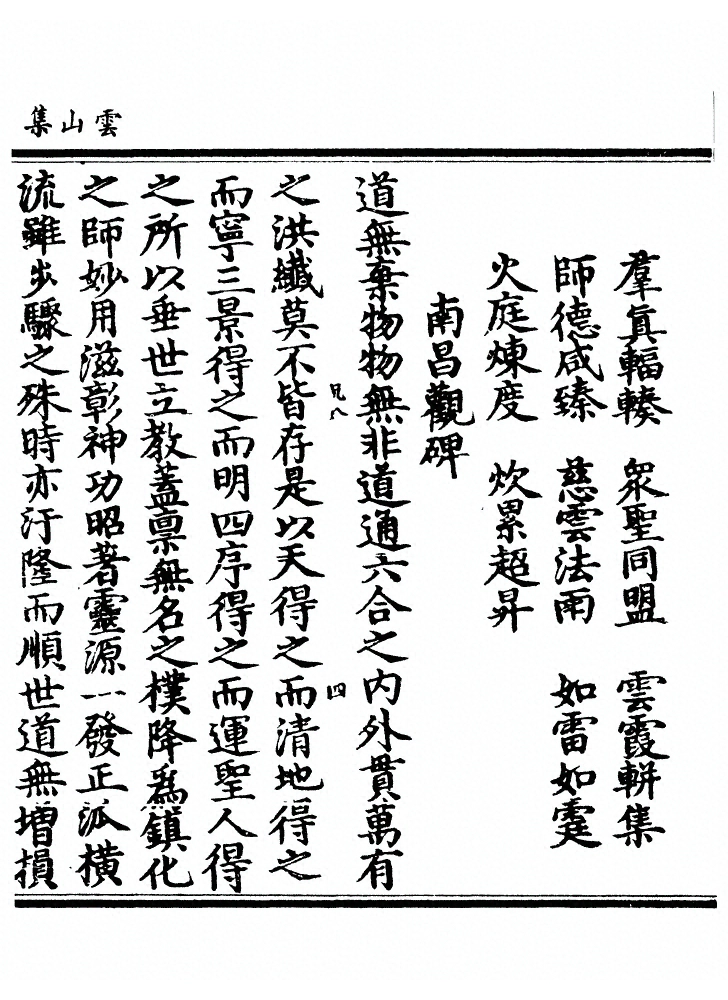 雲山集
羣眞輻輳　衆聖同盟　雲霞軿集
師德咸臻　慈雲法雨　如雷如霆
火庭煉度　炊累超昇
南昌觀碑
道無棄物物無非道通六合之内外貫萬有
兄八
四
之洪纖莫不皆存是以天得之而清地得之
而寧三景得之而明四序得之而運聖人得
之所以垂世立教蓋禀無名之樸降爲鎮化
之師妙用滋彰神功昭著靈源一發正派橫
流雖步驟之殊時亦汙隆而順世道無增損